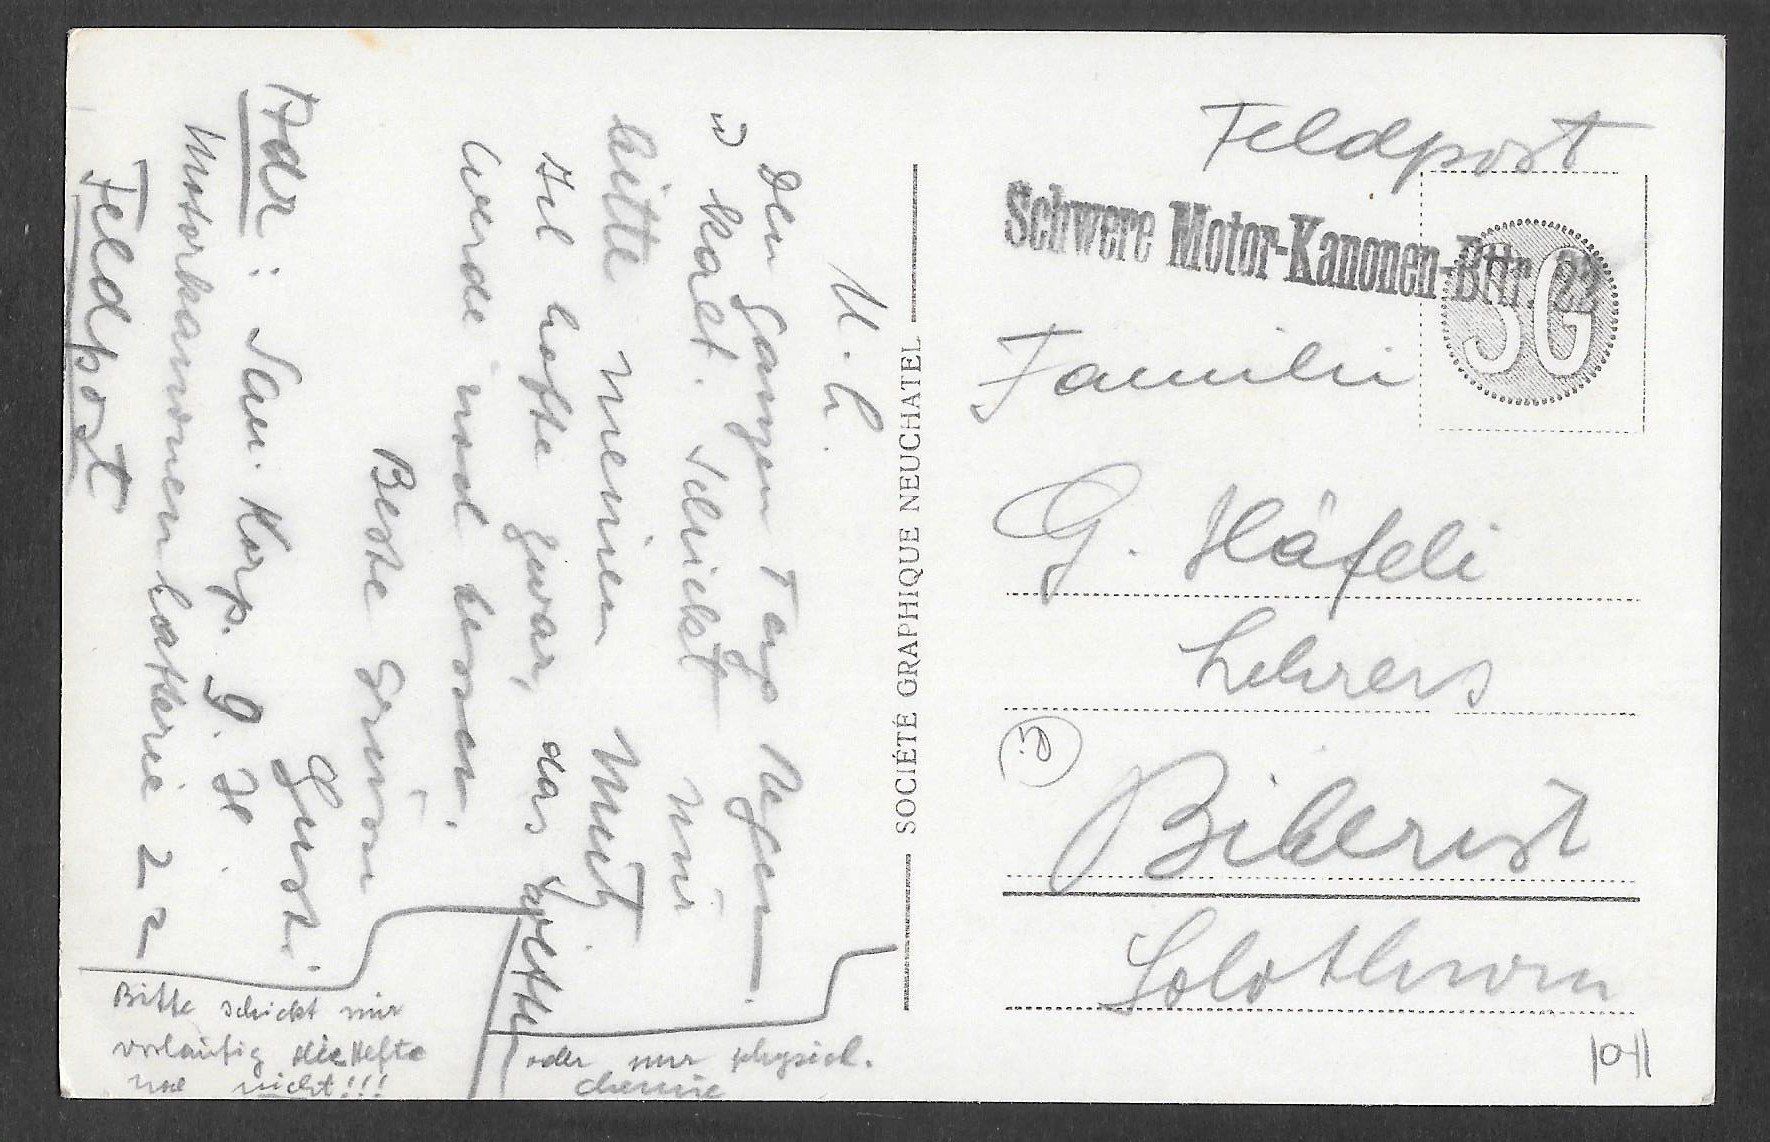 Feldpost
Schwere Motor-Kanonen-Bttr. 22
SG
Familie
G. Häfeli
Lehrers
Biberist
Solothurn
SOCIÉTÉ GRAPHIQUE NEUCHATEL
M. L.
Den ganzen Tag Regen
kalt. Schickt mir
bitte meinen
Ich hoffe zwar, das Wetter
werde noch
Beste Grüsse
Gust.
Adr: San. Korp. G. H.
Motorkanonenbatterie 22
Feldpost
Bitte schickt mir
vorläufig die Hefte
noch nicht!!!
oder nur physik.
chemie